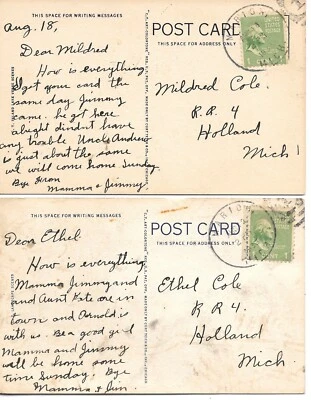 THIS SPACE FOR WRITING MESSAGES
Aug. 18,
Dear Mildred
How is everything
I got your card the
same day Jimmy
came he got here
alright dindnt have
any trouble Uncle Andrew
is just about the same
we will come home Sunday
Bye from
Mamma & Jimmy
POST CARD
THIS SPACE FOR ADDRESS ONLY
Mildred Cole
R.R. 4
Holland
Mich!
THIS SPACE FOR WRITING MESSAGES
Dear Ethel
How is everything
Mamma Jimmy and
and Aunt Kate are in
town and Arnold is
with us. Be a good girl
Mamma and Jimmy
will be home some
time Sunday. Bye
Mamma & Jim
POST CARD
THIS SPACE FOR ADDRESS ONLY
Ethel Cole
R R 4
Holland
Mich